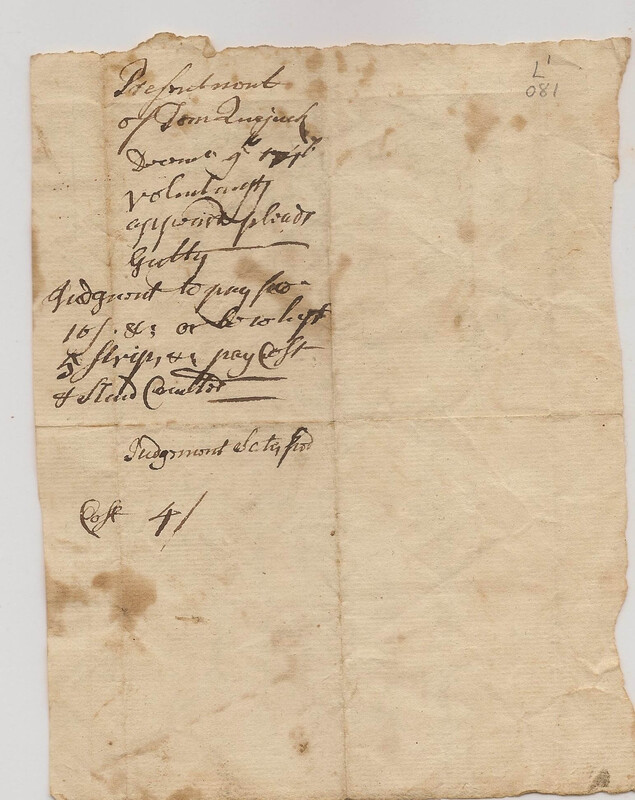 L'
081
Presentment
of Tom Quaquish
Decem 9th 1717
Voluntaryly
appeard pleads
Guilty
Judgment to pay fine
10/. &c or be whipt
5 strips, & pay Cost
& Stand Comitted
Judgement Sctisfied
Cost 4/